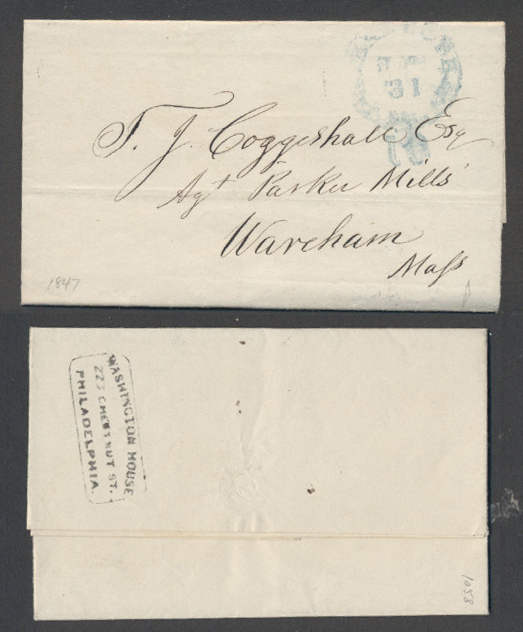 31
T. J. Coggeshall Esq
Agt Parker Mills
Wareham
Mass
1847
WASHINGTON HOUSE
223 CHESTNUT ST.
PHILADELPHIA.
1058